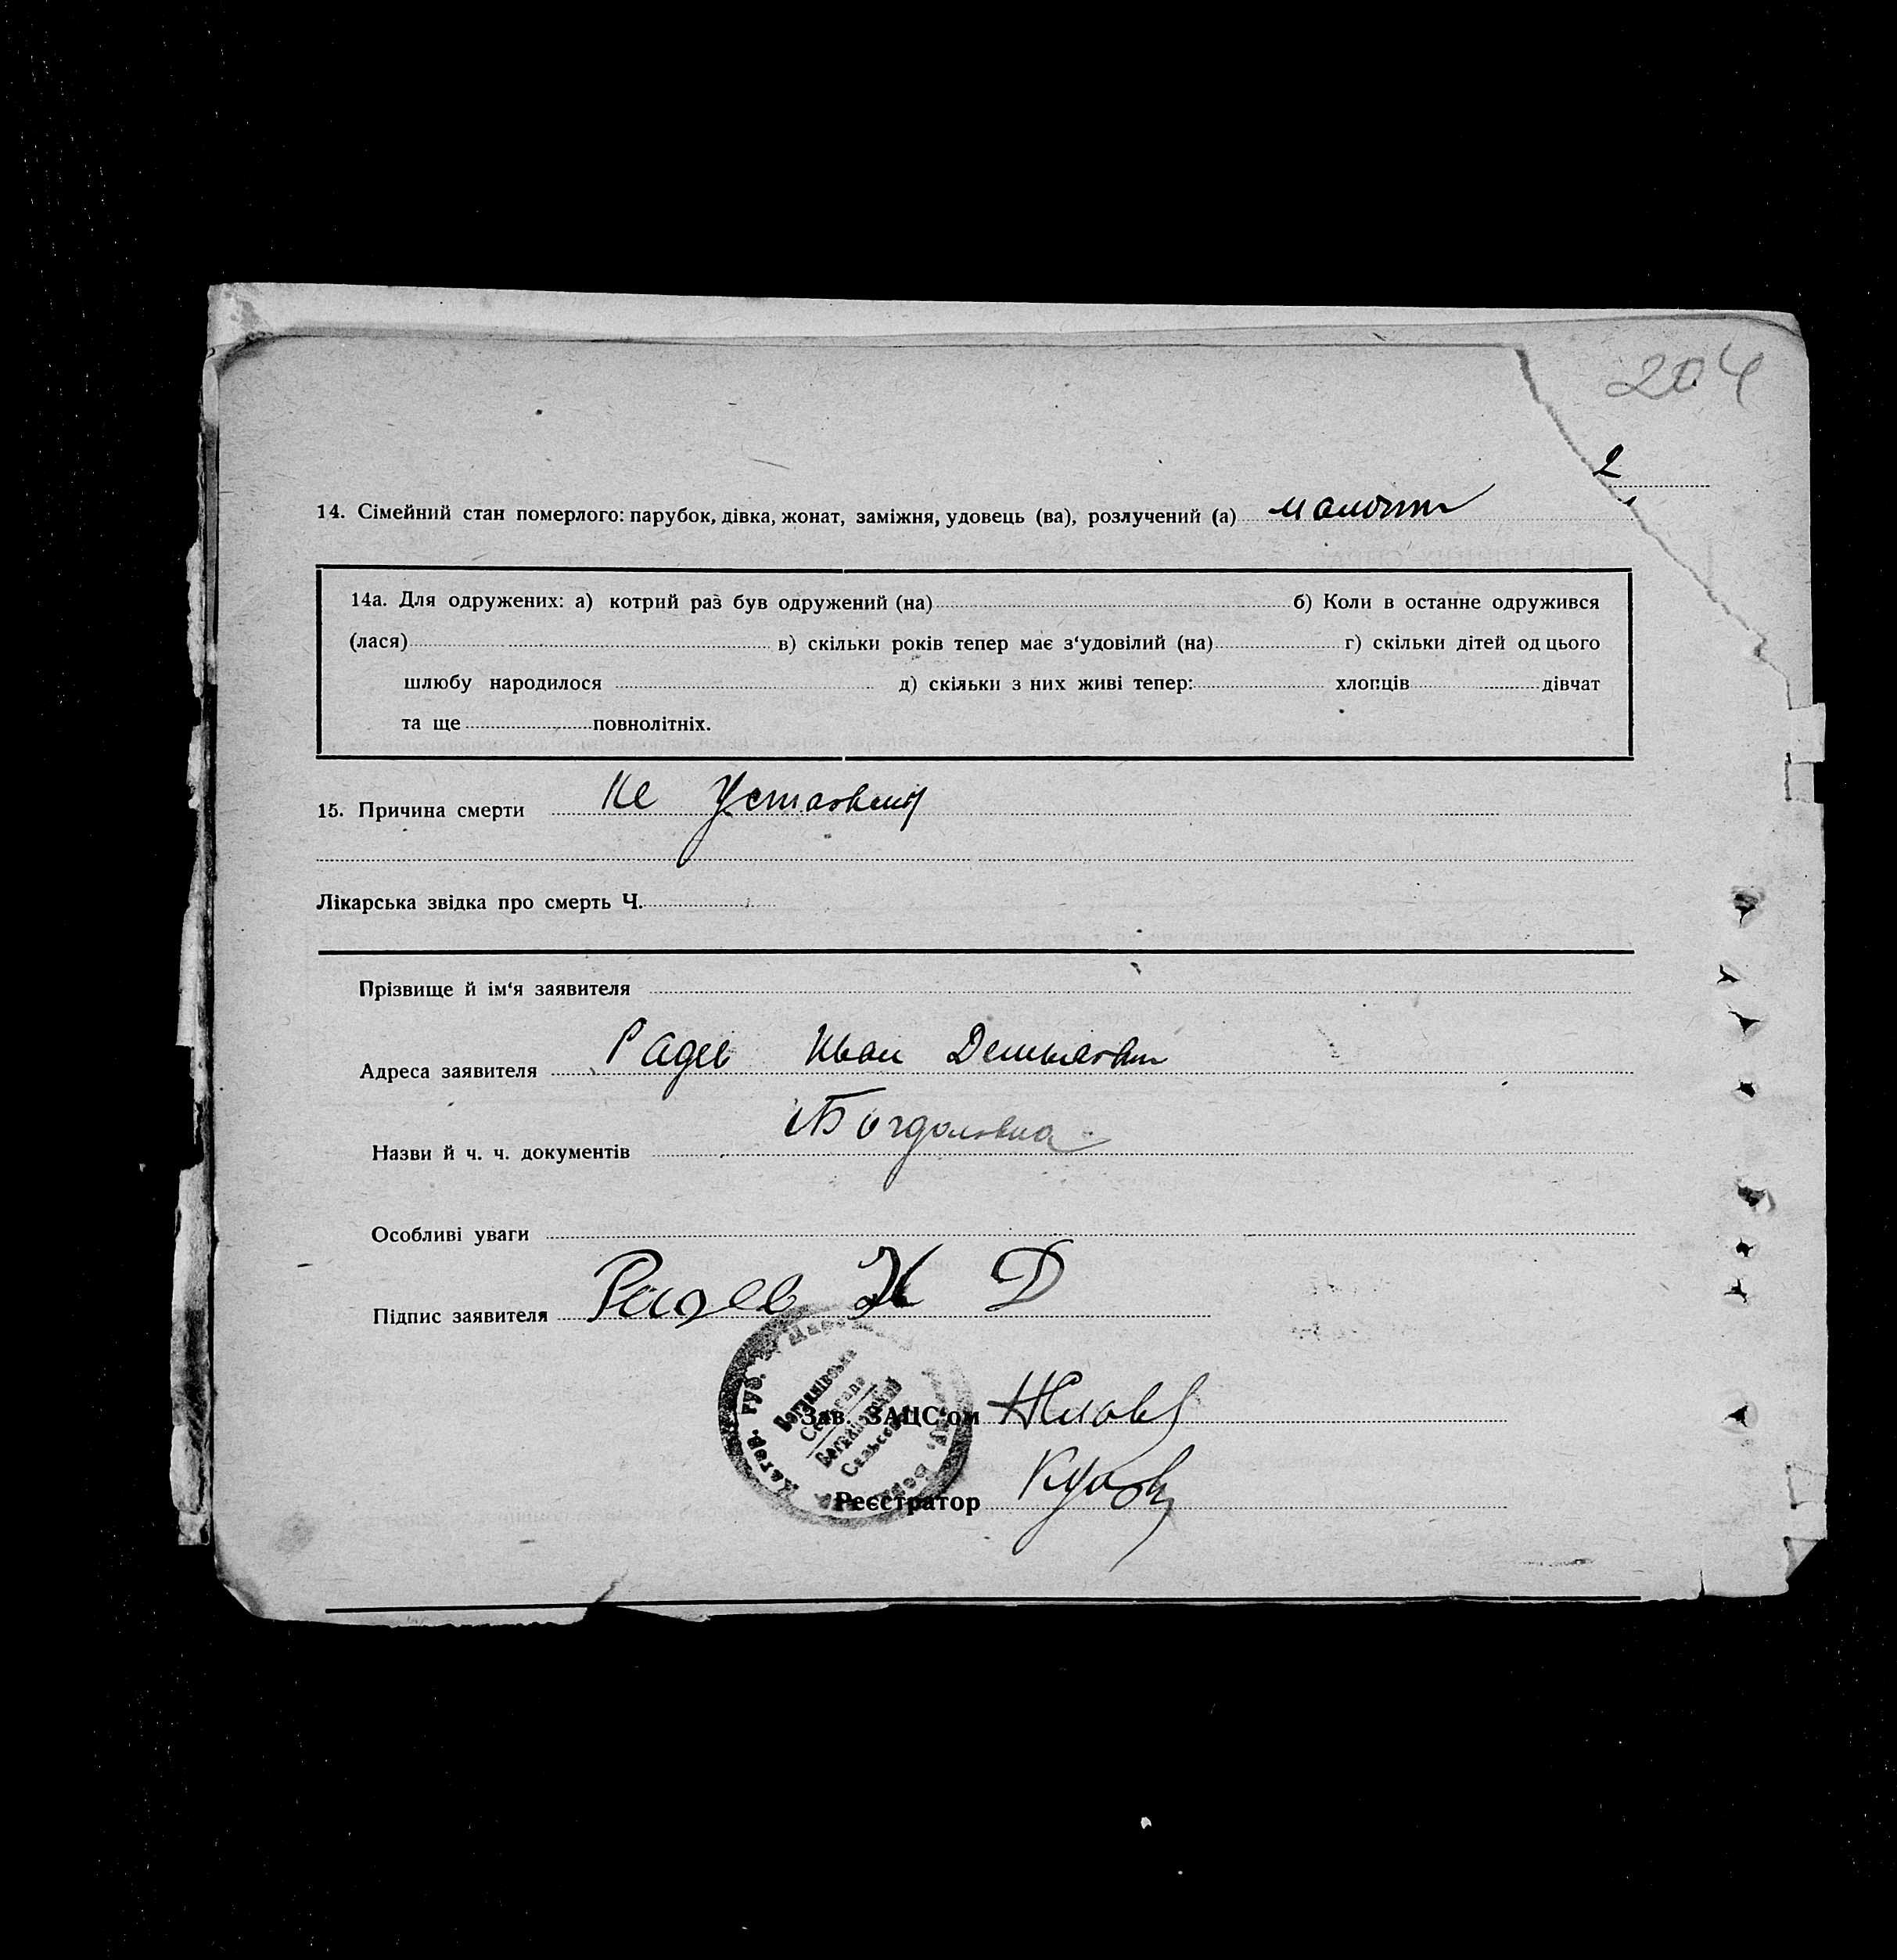 204
2
14. Сімейний стан померлого: парубок, дівка, жонат, заміжня, удовець (ва), розлучений (а)
14а. Для одружених: а) котрий раз був одружений (на) б) Коли в останне одружився
(лася) в) скільки років тепер має з‘удовілий (на) г) скільки дітей од цього
шлюбу народилося д) скільки з них живі тепер: хлопців дівчат
та ще повнолітніх.
15. Причина смерти Не
Лікарська звідка про смерть Ч.
Прізвище й ім‘я заявителя
Адреса заявителя Радев Иван
Назви й ч. ч. документів
Особливі уваги
Підпис заявителя Радев И Д
Зав. ЗАЦС‘ом
Реєстратор